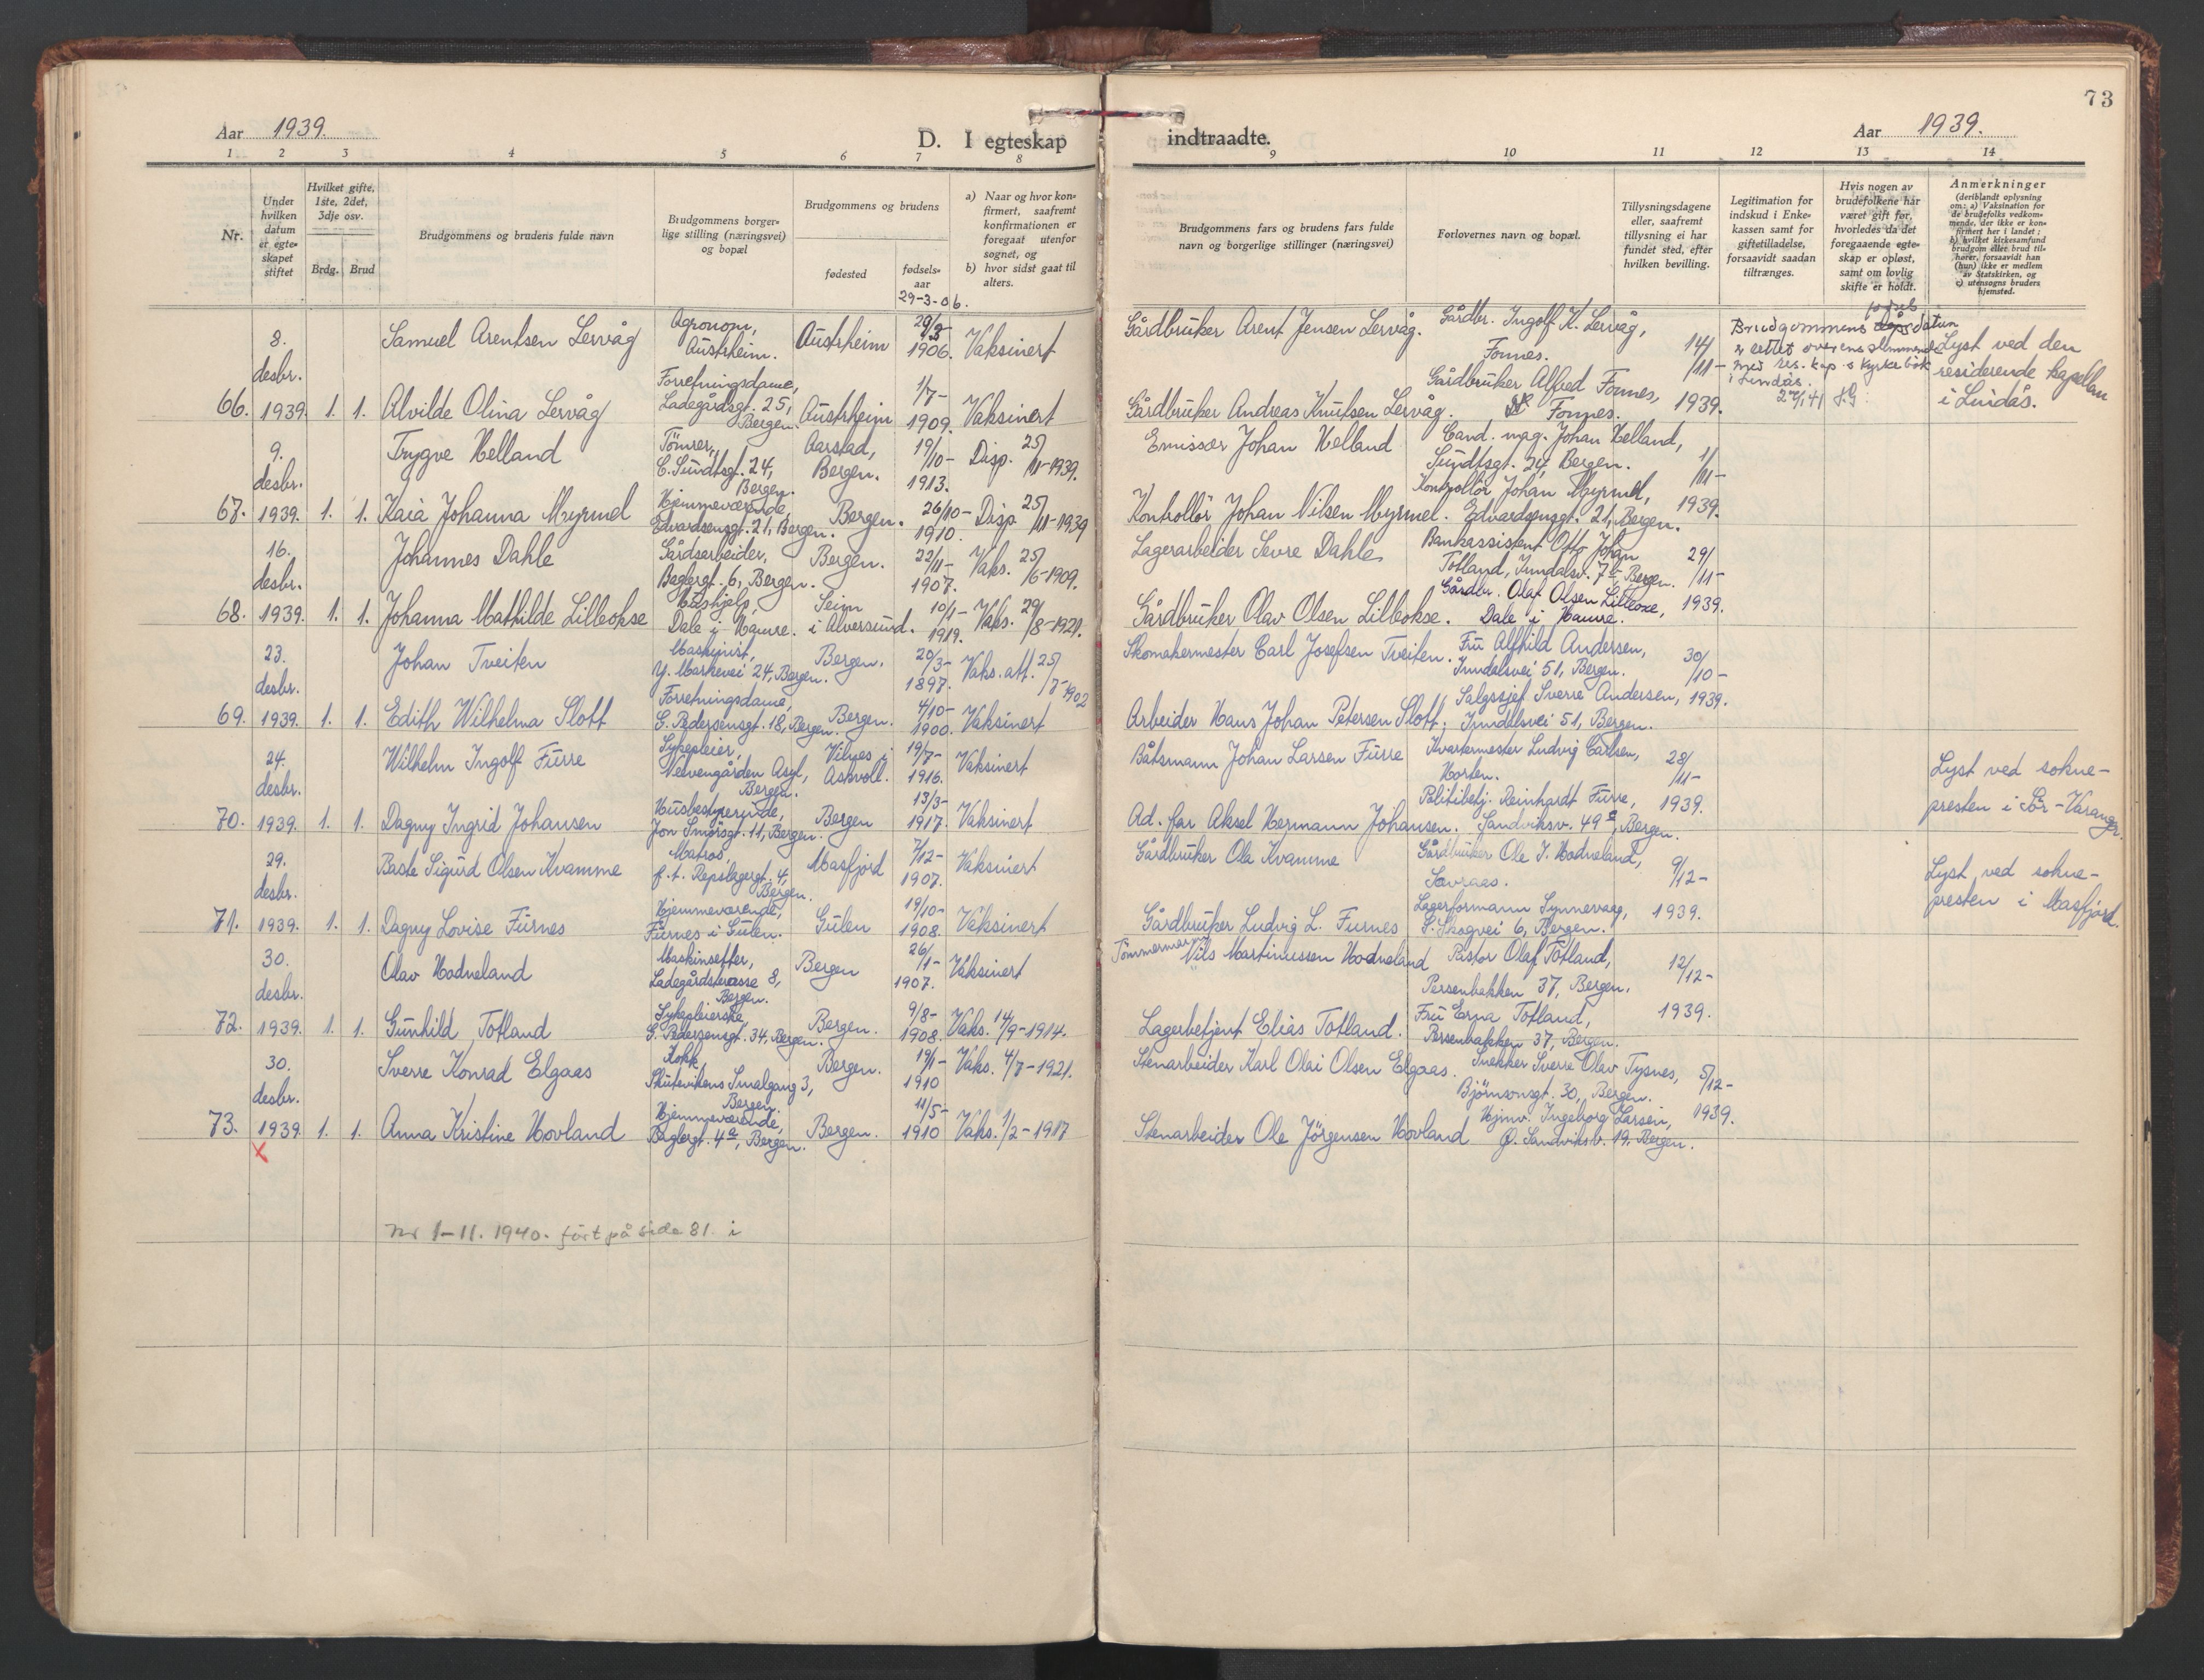 73
Aar 1939.
D. I egteskap
indtraadte.
Aar 1939.
1 2 3 4 5 6 7 8
9 10 11 12 13 14
Nr.
Under hvilken datum er egteskapet stiftet
Hvilket gifte, 1ste, 2det, 3dje osv.
Brdg. Brud
Brudgommens og brudens fulde navn
Brudgommens borgerlige stilling (næringsvei) og bopæl
Brudgommens og brudens
fødested
fødselsaar
a) Naar og hvor konfirmert, saafremt konfirmationen er foregaat utenfor sognet, og
b) hvor sidst gaat til alters.
Brudgommens fars og brudens fars fulde navn og borgerlige stillinger (næringsvei)
Forlovernes navn og bopæl.
Tillysningsdagene eller, saafremt tillysning ei har fundet sted, efter hvilken bevilling.
Legitimation for indskud i Enkekassen samt for giftetilladelse, forsaavidt saadan tiltrænges.
Hvis nogen av brudefolkene har været gift før, hvorledes da det foregaaende egteskap er opløst, samt om lovlig skifte er holdt.
Anmerkninger (deriblandt oplysning om: a) Vaksination for de brudefolks vedkommende, der ikke er konfirmert her i landet; b) hvilket kirkesamfund brudgom eller brud tilhører, forsaavidt han (hun) ikke er medlem av Statskirken, og c) utensogns bruders hjemsted.
29-3-06.
66. 8. desbr. 1939. 1. 1.
Samuel Arentsen Lervåg Agronom, Austrheim. Austrheim 29/3- 1906. Vaksinert
Alvilde Olina Lervåg Forretningsdame, Ladegårdsgt. 25, Bergen. Austrheim 1/7- 1909. Vaksinert
Gårdbruker Arent Jensen Lervåg.
Gårdbruker Andreas Knutsen Lervåg.
Gårdbr. Ingolf K. Lervåg, Fonnes.
Gårdbruker Alfred Fonnes, Fonnes.
14/11- 1939.
Brudgommens fødsels datum er rettet overensstemmende med res. kap.s kyrkjebok i Lindås.
Lyst ved den residerende kapellan i Lindås.
67. 9. desbr. 1939. 1. 1.
Trygve Helland Tömrer, C. Sundtsgt. 24, Bergen. Aarstad, Bergen. 19/10- 1913. Disp. 25/11-1939.
Kaia Johanna Myrmel Hjemmeværende, Edvardsensgt. 21, Bergen. Bergen. 26/10- 1910. Disp. 25/11-1939
Emissær Johan Helland
Kontrollör Johan Nilsen Myrmel.
Cand. mag. Johan Helland, Sundtsgt. 24, Bergen.
Kontrollör Johan Myrmel, Edvardsensgt. 21, Bergen.
1/11- 1939.
68. 16. desbr. 1939. 1. 1.
Johannes Dahle Gårdsarbeider, Baglergt. 6, Bergen. Bergen. 22/11- 1907. Vaks. 25/6-1909.
Johanna Mathilde Lilleokse Hushjelp, Dale i Hamre. Seim i Alversund. 10/1- 1919. Vaks. 29/8-1921.
Lagerarbeider Sevre Dahle
Gårdbruker Olav Olsen Lilleokse.
Bankassistent Otto Johan Totland, Inndalsv. 7, Bergen.
Gårdbr. Olaf Olsen Lilleoxe, Dale i Hamre.
29/11- 1939.
69. 23. desbr. 1939. 1. 1.
Johan Tveiten Maskinist, Y. Markevei 24, Bergen. Bergen. 20/3- 1897. Vaks. att. 25/7-1902
Edith Wilhelma Slott Forretningsdame, G. Pedersensgt. 18, Bergen. Bergen. 4/10- 1900. Vaksinert
Skomakermester Carl Josefsen Tveiten.
Arbeider Hans Johan Petersen Slott.
Fru Alfhild Andersen, Inndalsvei 51, Bergen.
Salgssjef Sverre Andersen, Inndalsvei 51, Bergen.
30/10- 1939.
70. 24. desbr. 1939. 1. 1.
Wilhelm Ingolf Furre Sykepleier, Neevengården Asyl, Bergen. Vilnes i Askvoll. 19/7- 1916. Vaksinert
Dagny Ingrid Johansen Husbestyrerinde, Jon Smörsgt. 11, Bergen. Bergen 13/3- 1917. Vaksinert
Båtsmann Johan Larsen Furre
Ad. far Aksel Hermann Johansen.
Kvartermester Ludvig Carlsen, Horten.
Politibetj. Reinhardt Furre, Sandviksv. 49, Bergen.
28/11- 1939.
Lyst ved sokne-presten i Sör-Varanger.
71. 29. desbr. 1939. 1. 1.
Baste Sigurd Olsen Kvamme Matros, f.t. Repslagergt. 4, Bergen. Masfjord 7/12- 1907. Vaksinert
Dagny Lovise Furnes Hjemmeværende, Furnes i Gulen. Gulen 19/10- 1908. Vaksinert
Gårdbruker Ola Kvamme
Gårdbruker Ludvig L. Furnes
Gårdbruker Ole J. Hodneland, Sævraas.
Lagerformann Synnevaag, S. Skogvei 6, Bergen.
9/12- 1939.
Lyst ved sokne-presten i Masfjord.
72. 30. desbr. 1939. 1. 1.
Olav Hodneland Maskinsetter, Ladegårdsterasse 8, Bergen. Bergen 26/1- 1907. Vaksinert
Gunhild Totland Sykepleierske, G. Pedersensgt. 34, Bergen. Bergen. 9/8- 1908. Vaks. 14/9-1914.
Tömmermann Nils Martinussen Hodneland
Lagerbetjent Elias Totland.
Pastor Olaf Totland, Persenbakken 37, Bergen.
Fru Erna Totland, Persenbakken 37, Bergen.
12/12- 1939.
73. 30. desbr. 1939. 1. 1.
Sverre Konrad Elgaas Kokk Skutevikens Smalgang 3, Bergen. Bergen. 19/1- 1910 Vaks. 4/7-1921.
Anna Kristine Hovland Hjemmeværende, Baglergt. 4a, Bergen. Bergen. 11/5- 1910 Vaks. 1/2-1917
Stenarbeider Karl Olai Olsen Elgaas.
Stenarbeider Ole Jörgensen Hovland
Snekker Sverre Olav Tysnes, Björnsonsgt. 30, Bergen.
Hjmv. Ingeborg Larsen, Ø. Sandviksv. 19, Bergen.
5/12- 1939.
X
Nr 1-11. 1940. fört på side 81. i